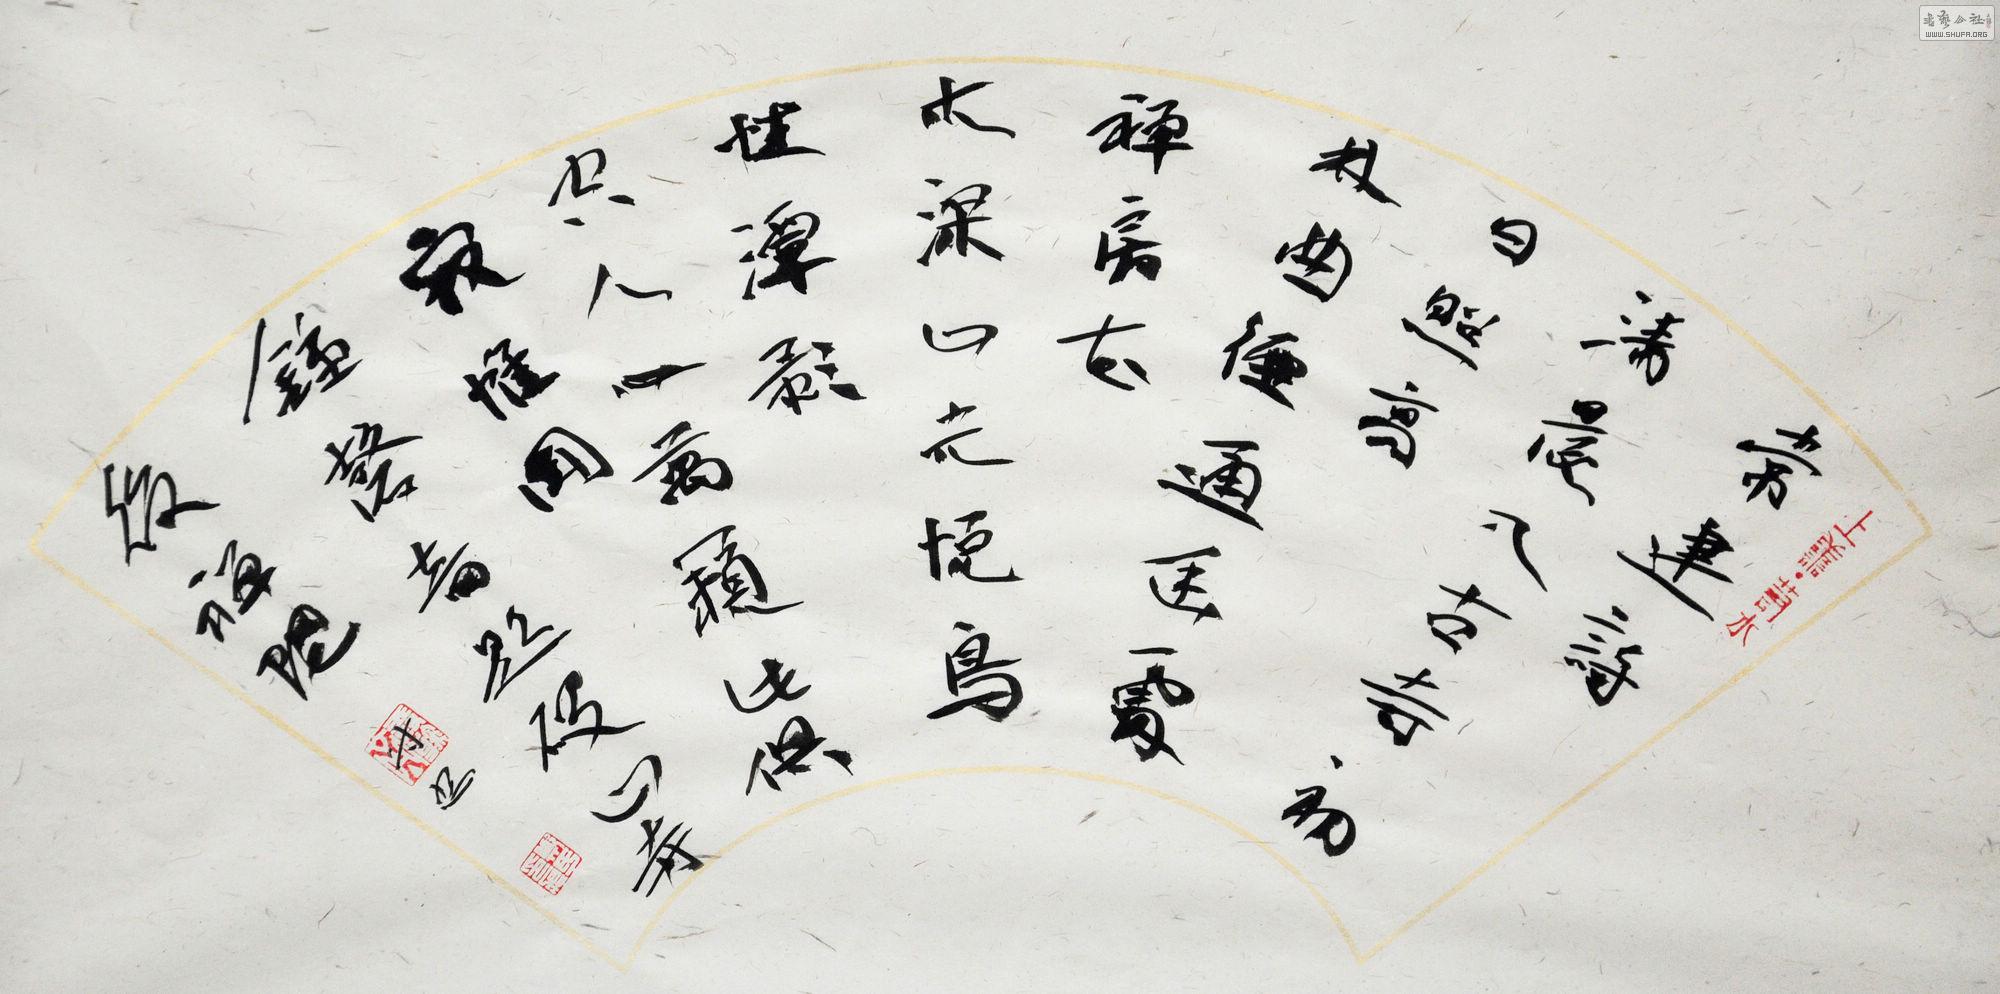 常建詩
上善·若水
清晨入古寺初
日照高
林曲徑通幽處
禪房花
木深山光悅鳥
性潭影
空人心萬籟此俱
寂惟聞
鐘磬音題破山寺
後禪院
书艺公社
WWW.SHUFA.ORG